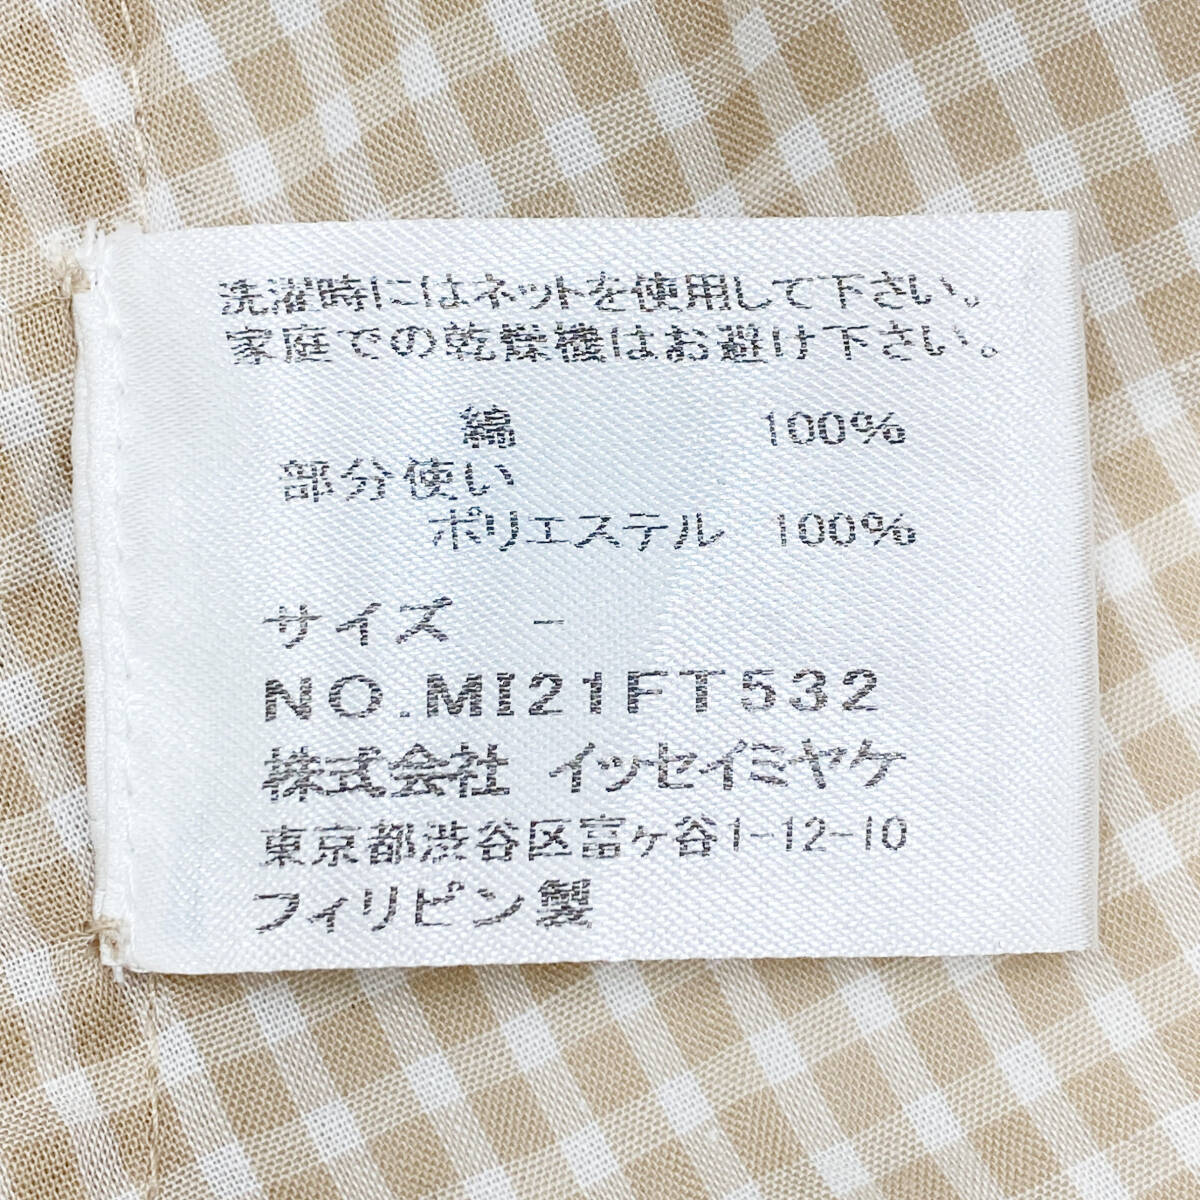 洗濯時にはネットを使用して下さい。
家庭での乾燥機はお避け下さい。
綿 100%
部分使い
ポリエステル 100%
サイズ -
NO.MI21FT532
株式会社 イッセイミヤケ
東京都渋谷区富ヶ谷1-12-10
フィリピン製